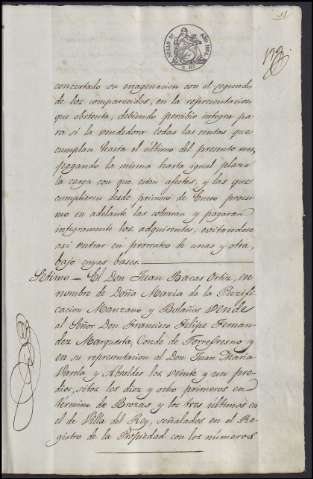 11
concertado su enagenacion con el segundo
de los comparecidos, en la representacion
que obstenta, debiendo percibir integra pa
ra si la vendedora todas las rentas que
cumplan hasta el ultimo del presente mes,
pagando la misma hasta igual plazo
la carga con que estan afectas, y las que
cumplieren desde primero de Enero procsi
mo en adelante las cobrara y pagaran
integramente los adquirentes, evitandose
asi entrar en prorrateo de unas y otra,
bajo cuyas bases.
Setimo — El Don Juan Bacas Ortiz, en
nombre de Doña Maria de la Purifi
cacion Manzano y Bolaños Vende
al Señor Don Francisco Felipe Fernan
dez Marquesta, Conde de Torrefresno y
en su representacion el Don Juan Maria
y Arnaldo los veinte y un pre
dios, sitos los diez y ocho primeros en
termino de Brozas y los tres ultimos en
el de Villa del Rey, señalados en el Re
gistro de la Propiedad con los numeros